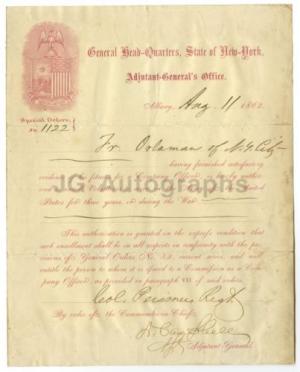 General Head-Quarters, State of New-York,
Adjutant-General's Office.
Albany, Aug 11 1862.
Special Orders,
No. 1122
Fr. of N.Y. City
having furnished satisfactory
evidence of his fitness for a Company Officer, is hereby author
States for three years, or during the War.
JG Autographs
This authorization is granted on the express condition that
such enrollment shall be in all respects in conformity with the pro-
visions of General Orders, No. 52, current series, and will
entitle the person to whom it is issued to a Commission as a Com-
pany Officer, as provided in paragraph VII of such orders.
Col. Regt
By order of the Commander-in-Chief:
Adjutant General.